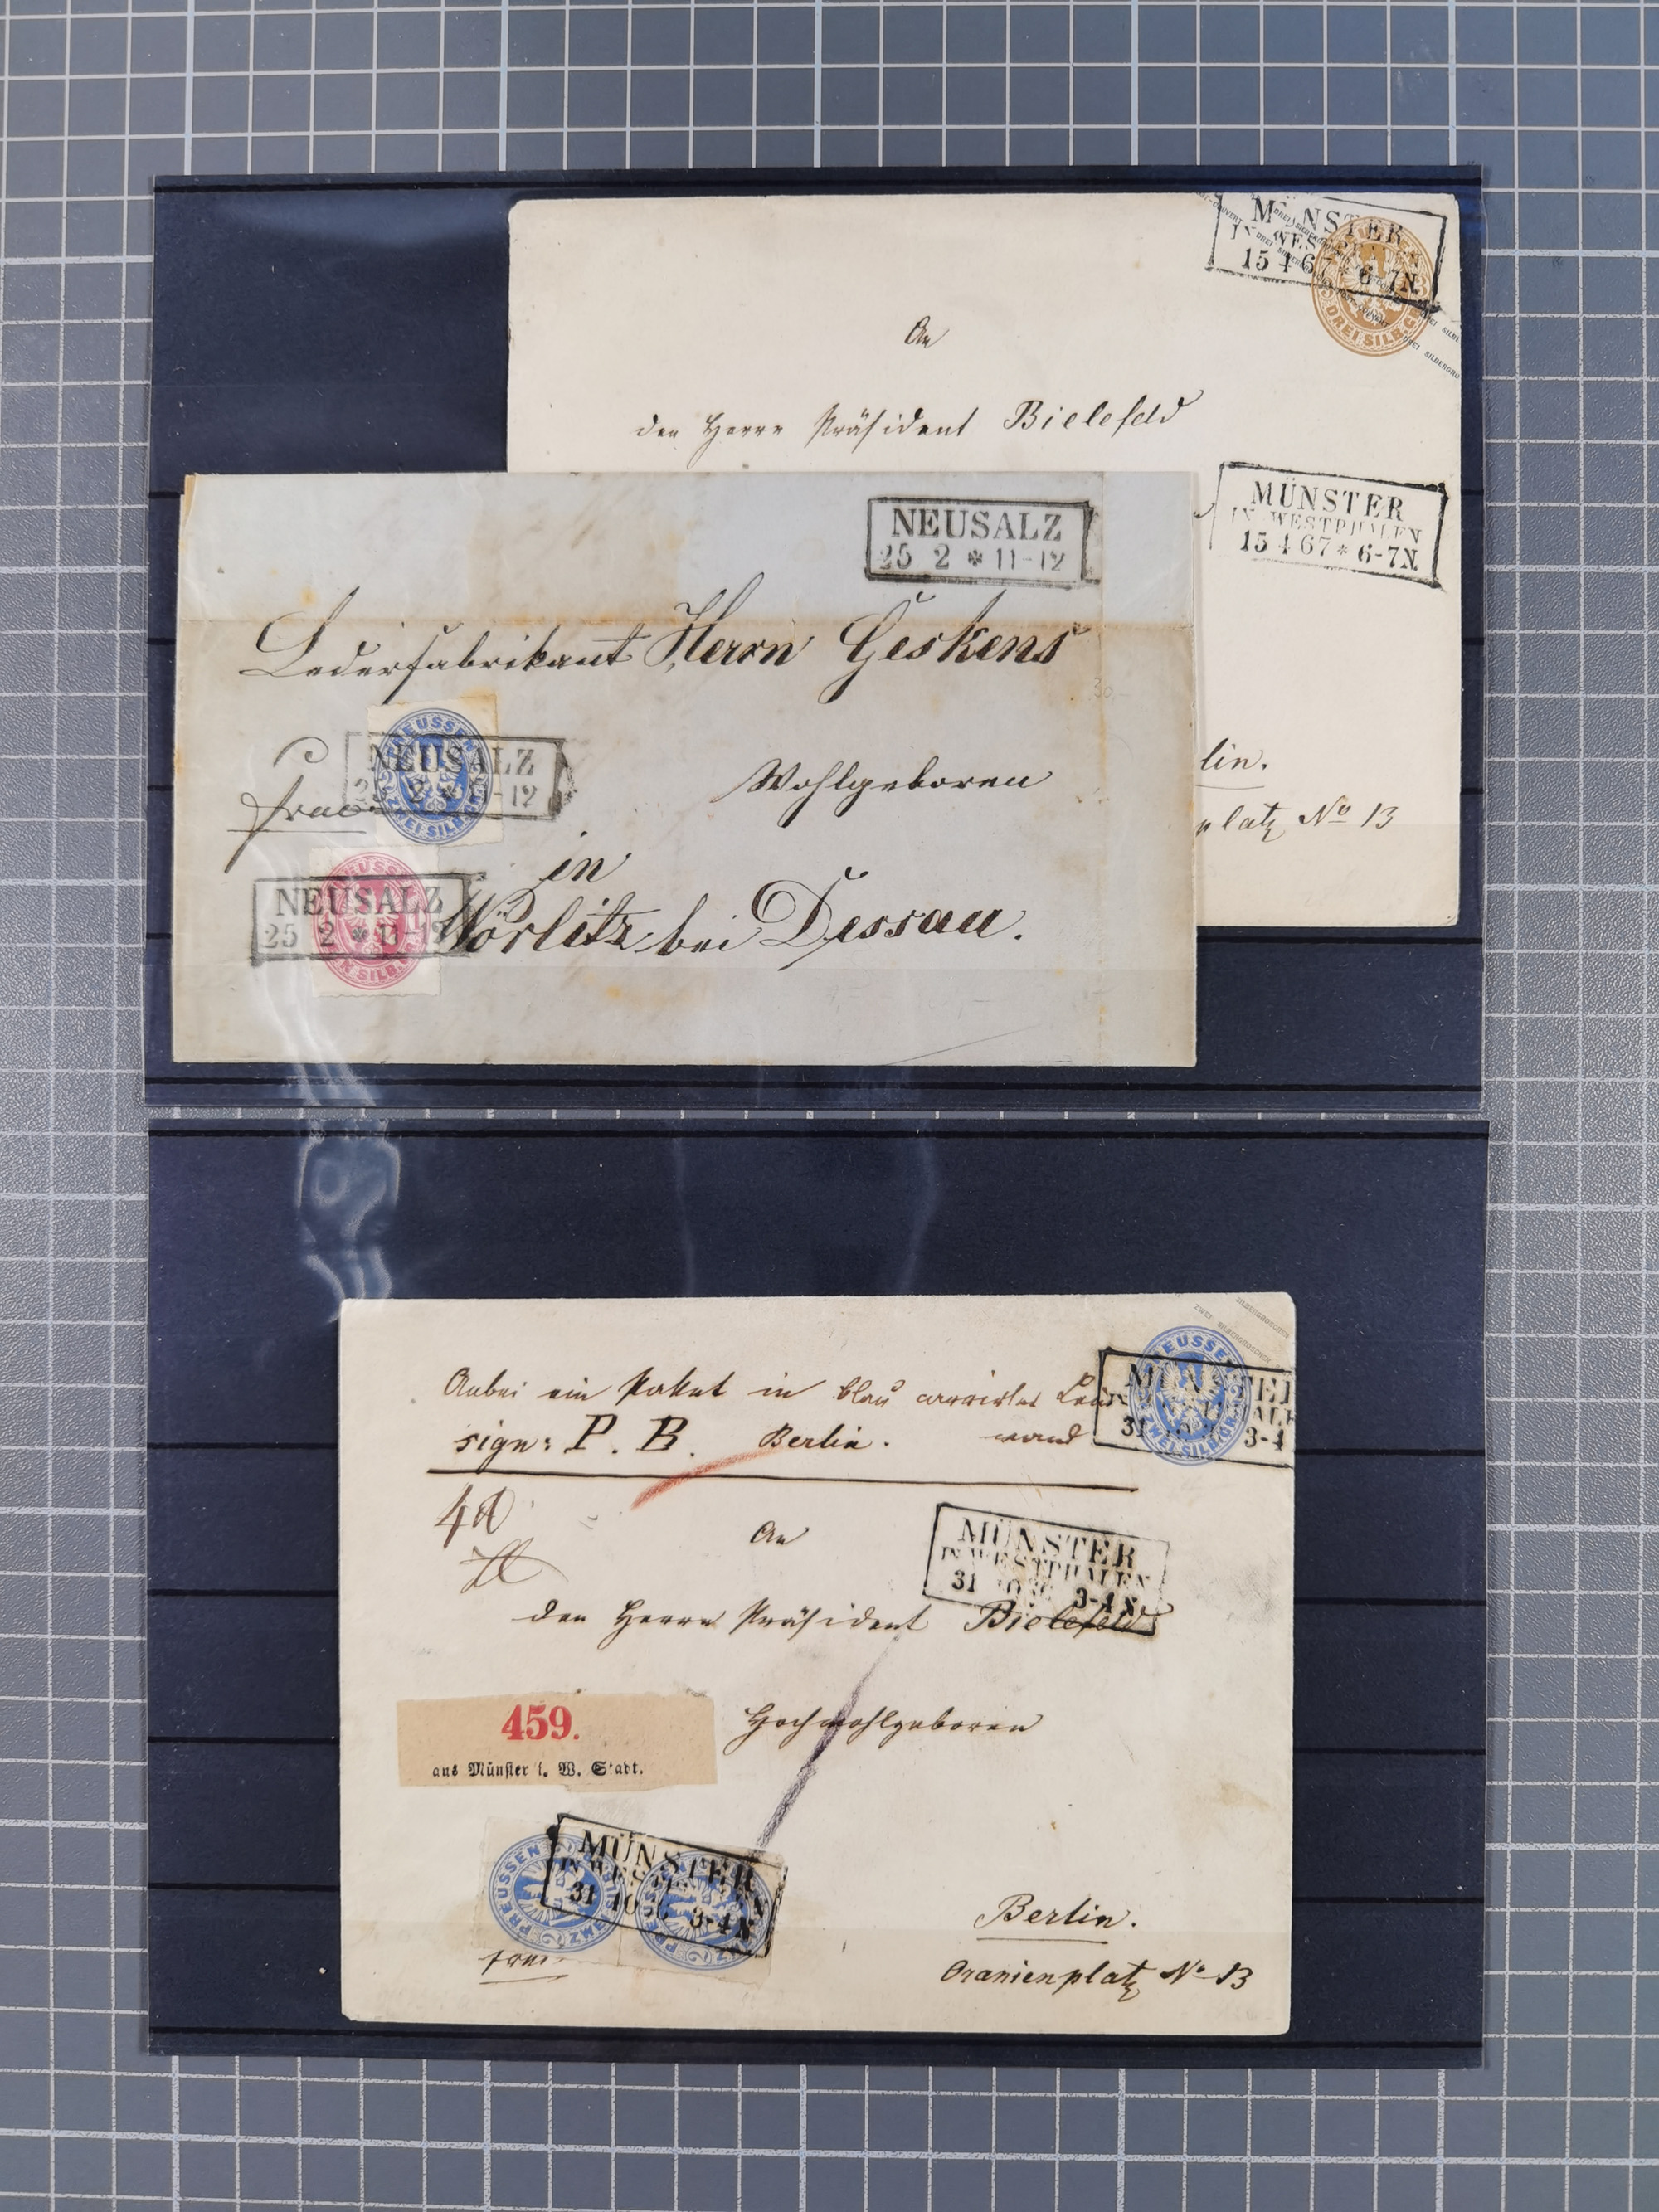 MÜNSTER
15 4 67 * 6-7N.
DREI SILB.GR.
An
den Herrn Präsident Bielefeld
MÜNSTER
IN WESTPHALEN
15 4 67 * 6-7N.
lin.
platz No 13
NEUSALZ
25 2 * 11-12
Lederfabrikant Herrn Geskens
30,-
PREUSSEN
ZWEI SILB.GR.
NEUSALZ
2 * -12
Wohlgeboren
in
PREUSSEN
EIN SILB.GR.
NEUSALZ
25 2 * 11-12
Wörlitz bei Dessau.
ZWEI SILBERGROSCHEN
PREUSSEN
ZWEI SILB.GR.
MÜNSTER
31 3-4
Anbei ein Paket in blau carrirter Lein
sign: P. B. Berlin. wand
An
MÜNSTER
IN WESTPHALEN
31 10 3-4 N.
den Herrn Präsident Bielefeld
459.
aus Münster i. W. Stadt.
Hochwohlgeboren
PREUSSEN
PREUSSEN
MÜNSTER
31 10 3-4 N
Berlin.
Oranienplatz No 13